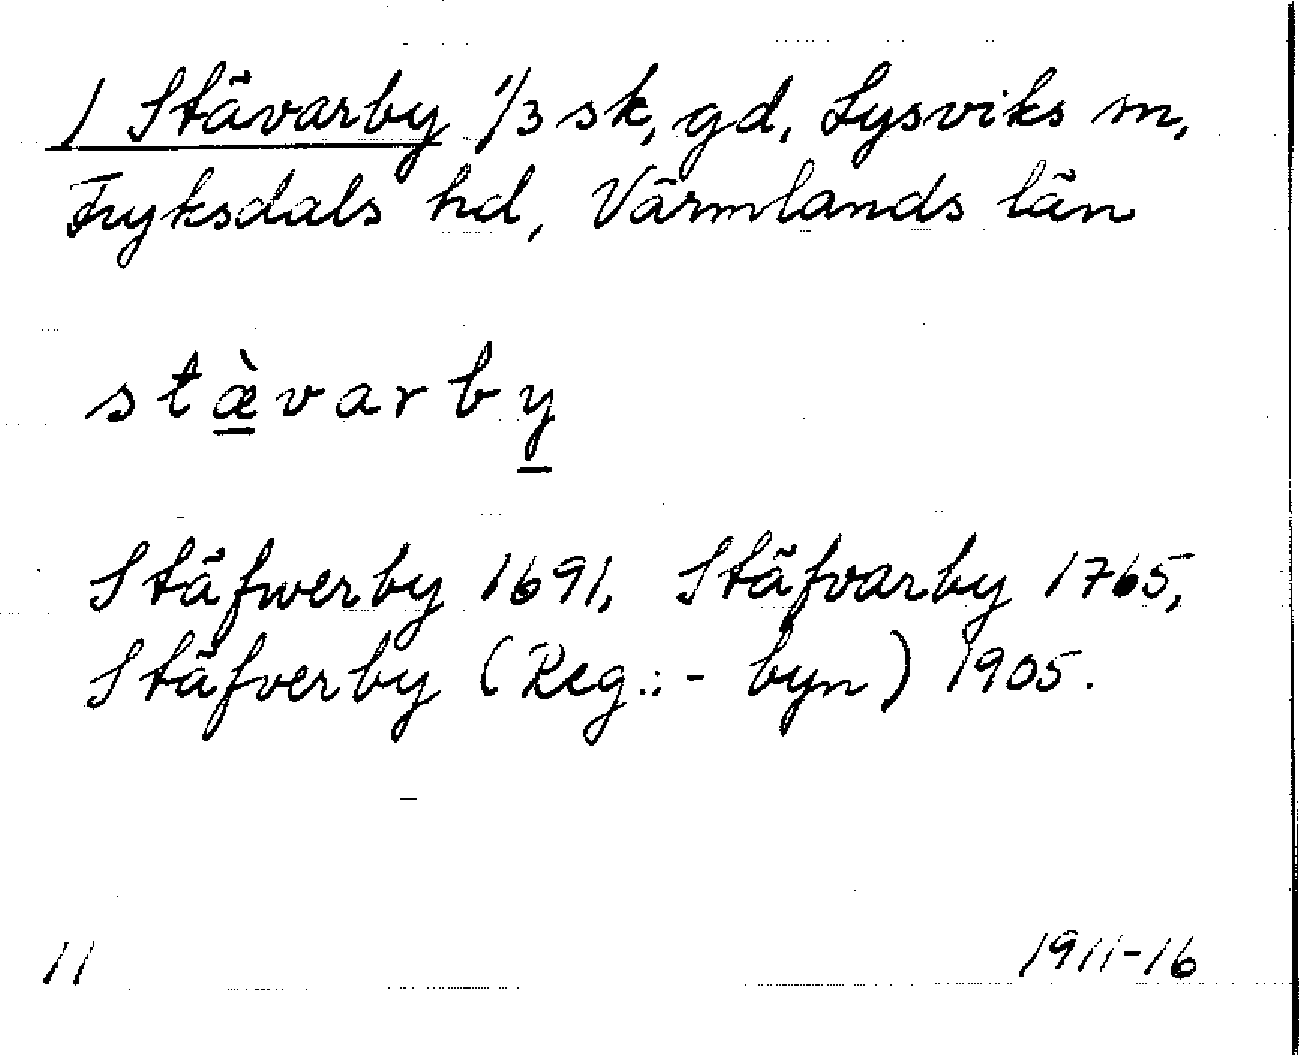 1 Stävarby 1/3 sk, gd, Lysviks sn,
Fryksdals hd, Värmlands län
stæ̀varby
Stäfwerby 1691, Stäfvarby 1765,
Stäfverby (Reg.: - byn) 1905.
11 1911-16